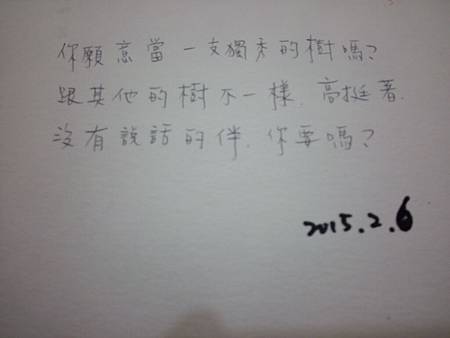 你願意當一支獨秀的樹嗎?
跟其他的樹不一樣.高挺著.
沒有說話的伴.你要嗎?
2015.2.6